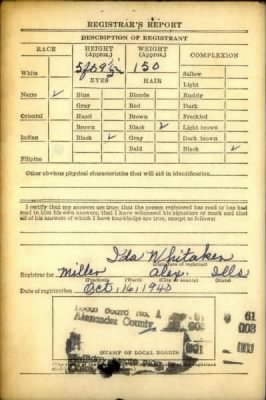 REGISTRAR'S REPORT
DESCRIPTION OF REGISTRANT
RACE HEIGHT (Approx.) WEIGHT (Approx.) COMPLEXION
White 5 ft 9½ 150 Sallow
EYES HAIR Light
Negro ✓ Blue Blonde Ruddy
Gray Red Dark
Oriental Hazel Brown Freckled
Brown Black ✓ Light brown
Indian Black ✓ Gray Dark brown
Bald Black ✓
Filipino
Other obvious physical characteristics that will aid in identification
I certify that my answers are true; that the person registered has read or has had
read to him his own answers; that I have witnessed his signature or mark and that
all of his answers of which I have knowledge are true, except as follows:
Ida Whitaker
(Signature of registrar)
Registrar for Miller Alex. Ills
(Precinct) (City or county) (State)
Date of registration Oct. 16, 1940
Local Board No. 1 61
Alexander County 003
001
STAMP OF LOCAL BOARD